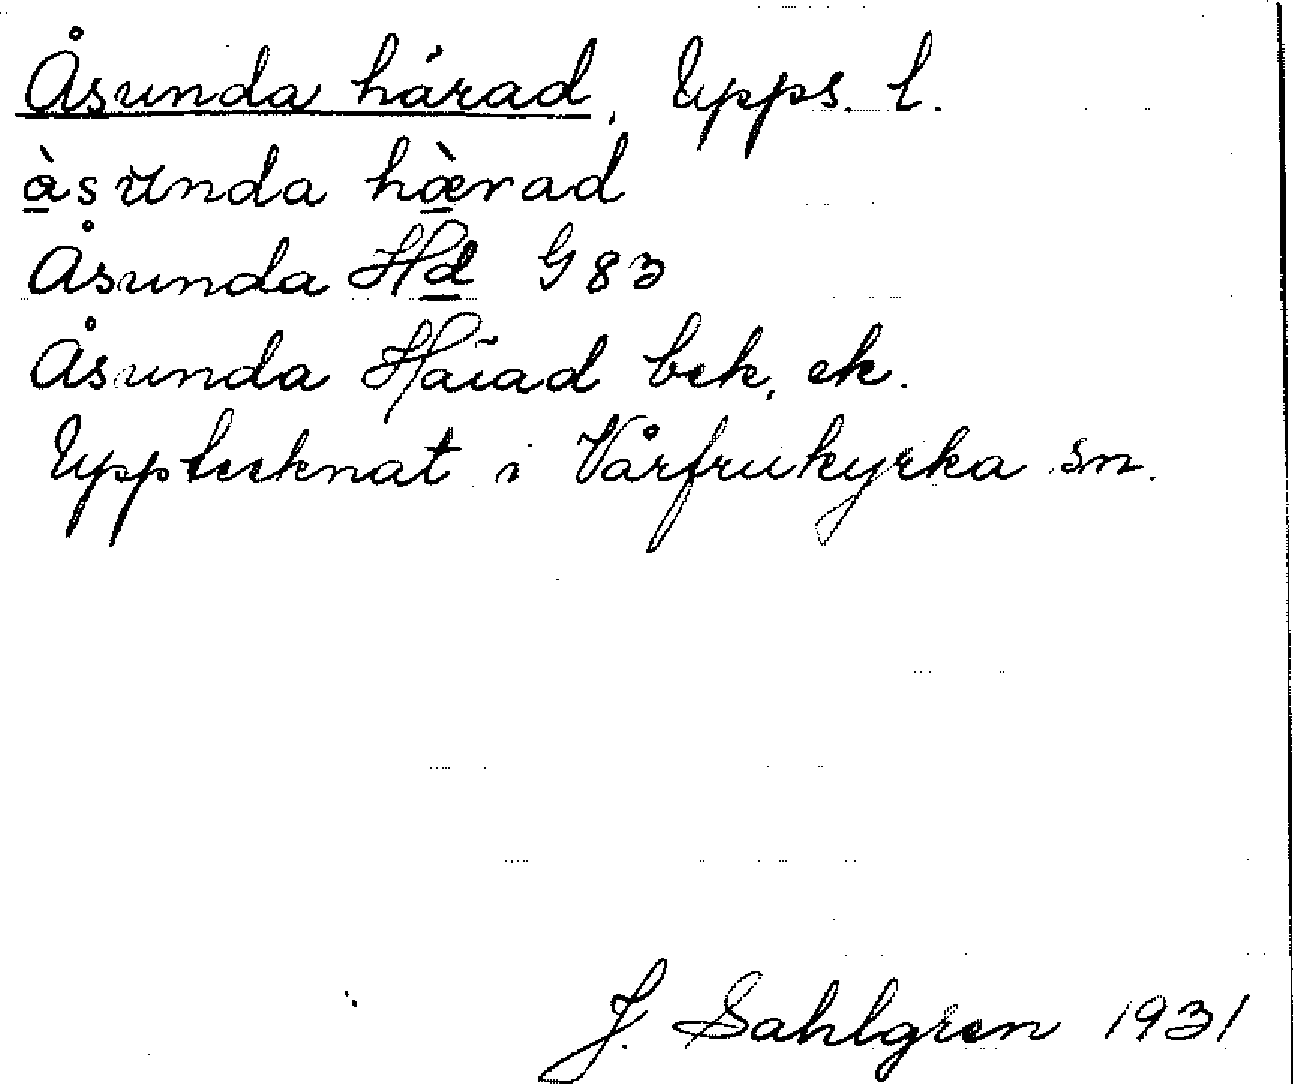 Åsunda härad, Upps. l.
àsunda hærad
Åsunda Hd G 83
Åsunda Härad bek, ek.
Upptecknat i Vårfrukyrka sn.
J. Sahlgren 1931